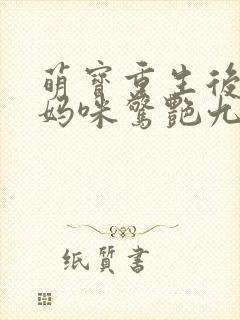 萌寶重生後
媽咪驚艷九
纸質書